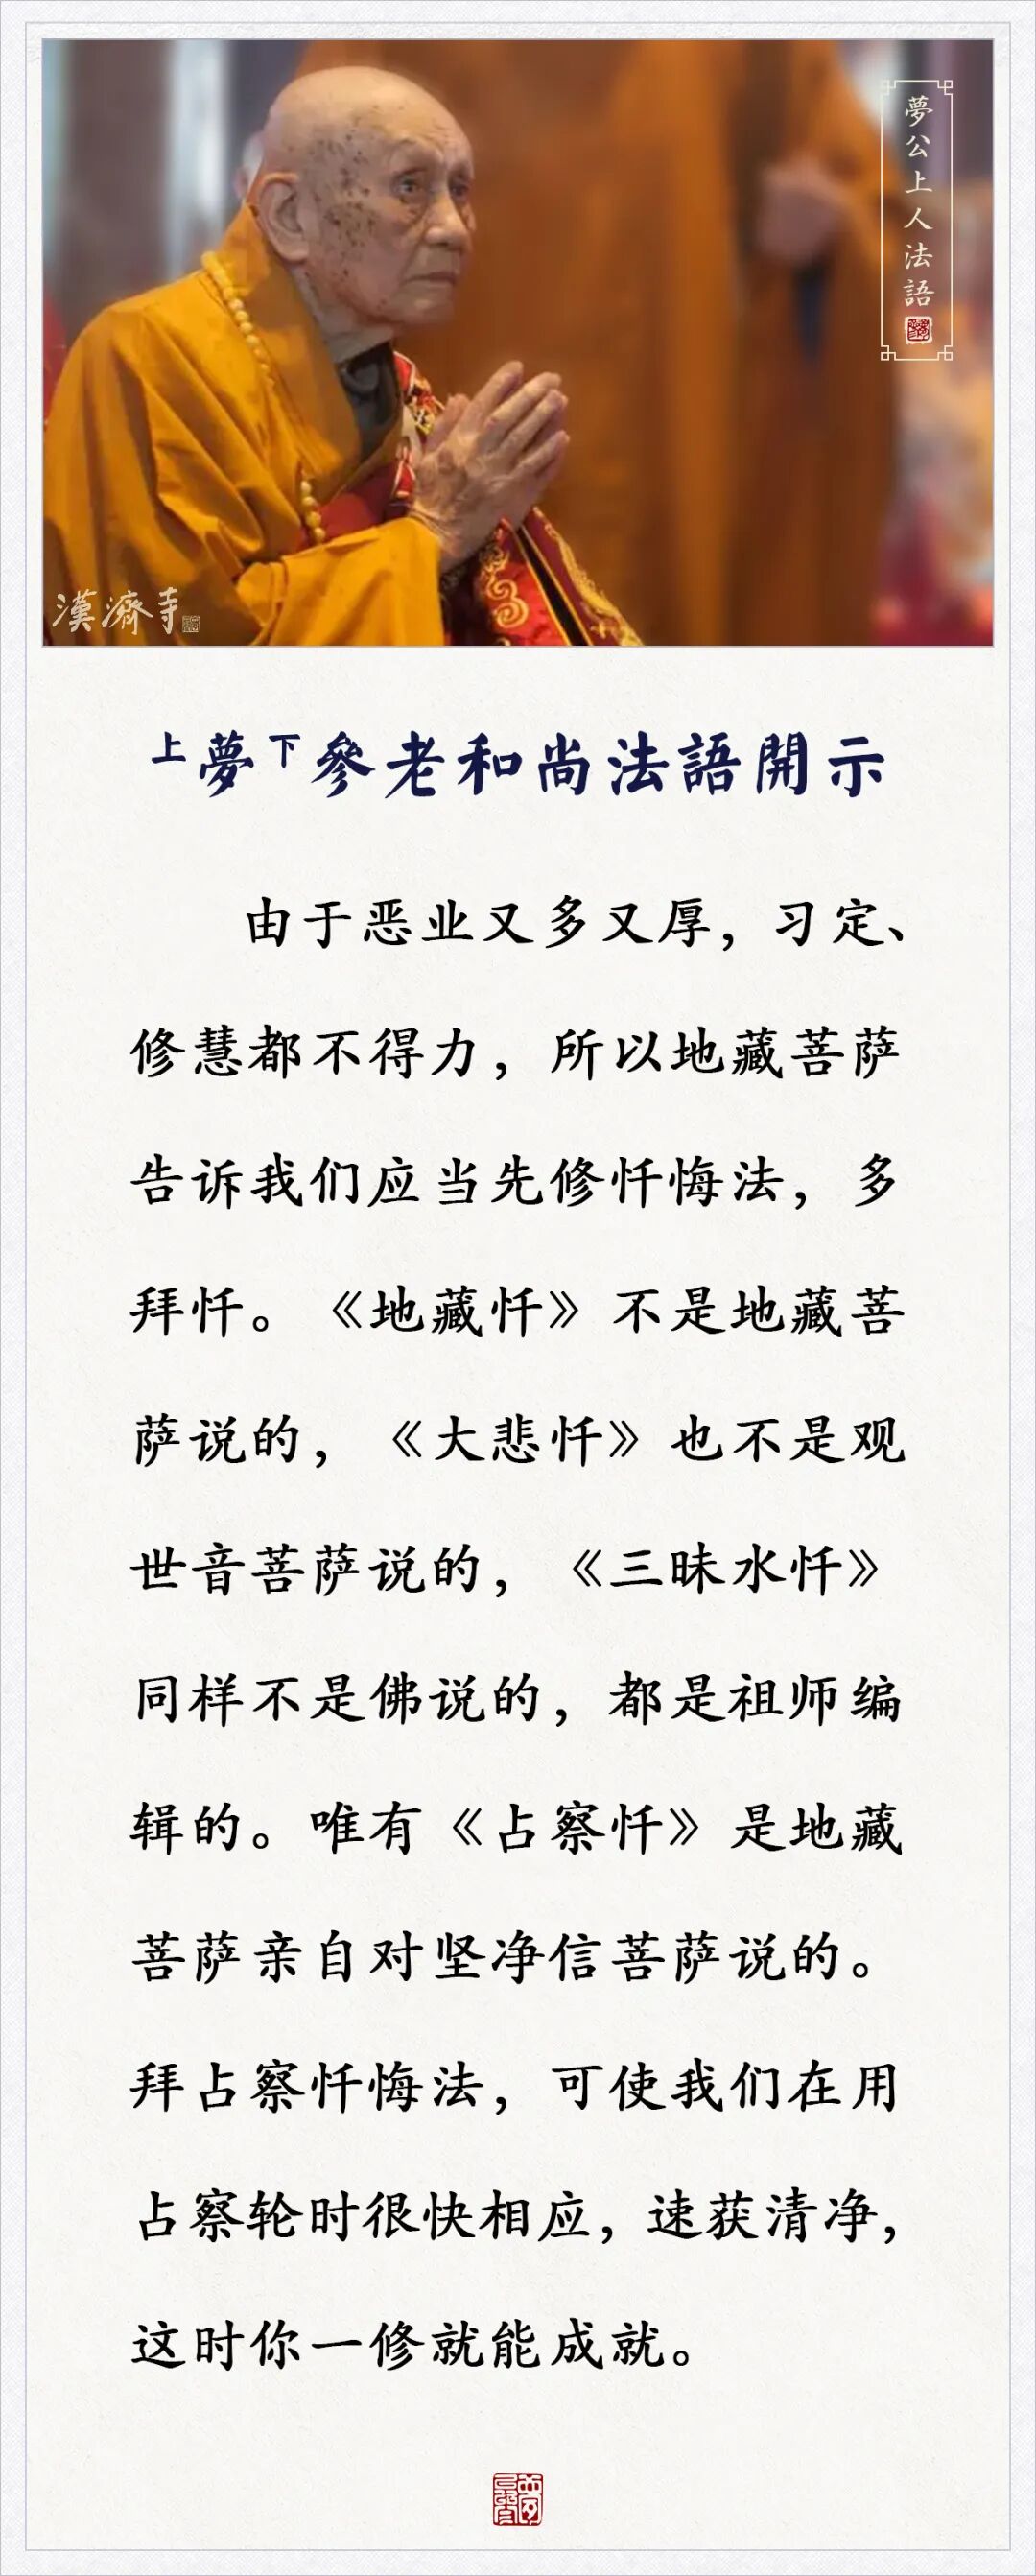 夢公上人法語
漢濟寺
上夢下參老和尚法語開示
由于恶业又多又厚，习定、
修慧都不得力，所以地藏菩萨
告诉我们应当先修忏悔法，多
拜忏。《地藏忏》不是地藏菩
萨说的，《大悲忏》也不是观
世音菩萨说的，《三昧水忏》
同样不是佛说的，都是祖师编
辑的。唯有《占察忏》是地藏
菩萨亲自对坚净信菩萨说的。
拜占察忏悔法，可使我们在用
占察轮时很快相应，速获清净，
这时你一修就能成就。